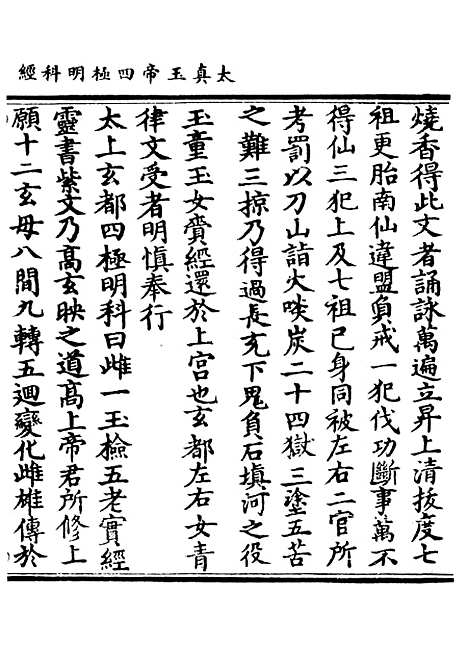 太真玉帝四極明科經
燒香得此文者誦詠萬遍立昇上清拔度七
祖更胎南仙違盟負戒一犯伐功斷事萬不
得仙三犯上及七祖已身同被左右二官所
考罰以刀山詣火啖炭二十四獄三塗五苦
之難三掠乃得過長充下鬼負石塡河之役
玉童玉女賷經還於上宮也玄都左右女青
律文受者明慎奉行
太上玄都四極明科曰雌一玉檢五老寳經
靈書紫文乃髙玄映之道髙上帝君所修上
願十二玄母八間九轉五迴變化雌雄傳於